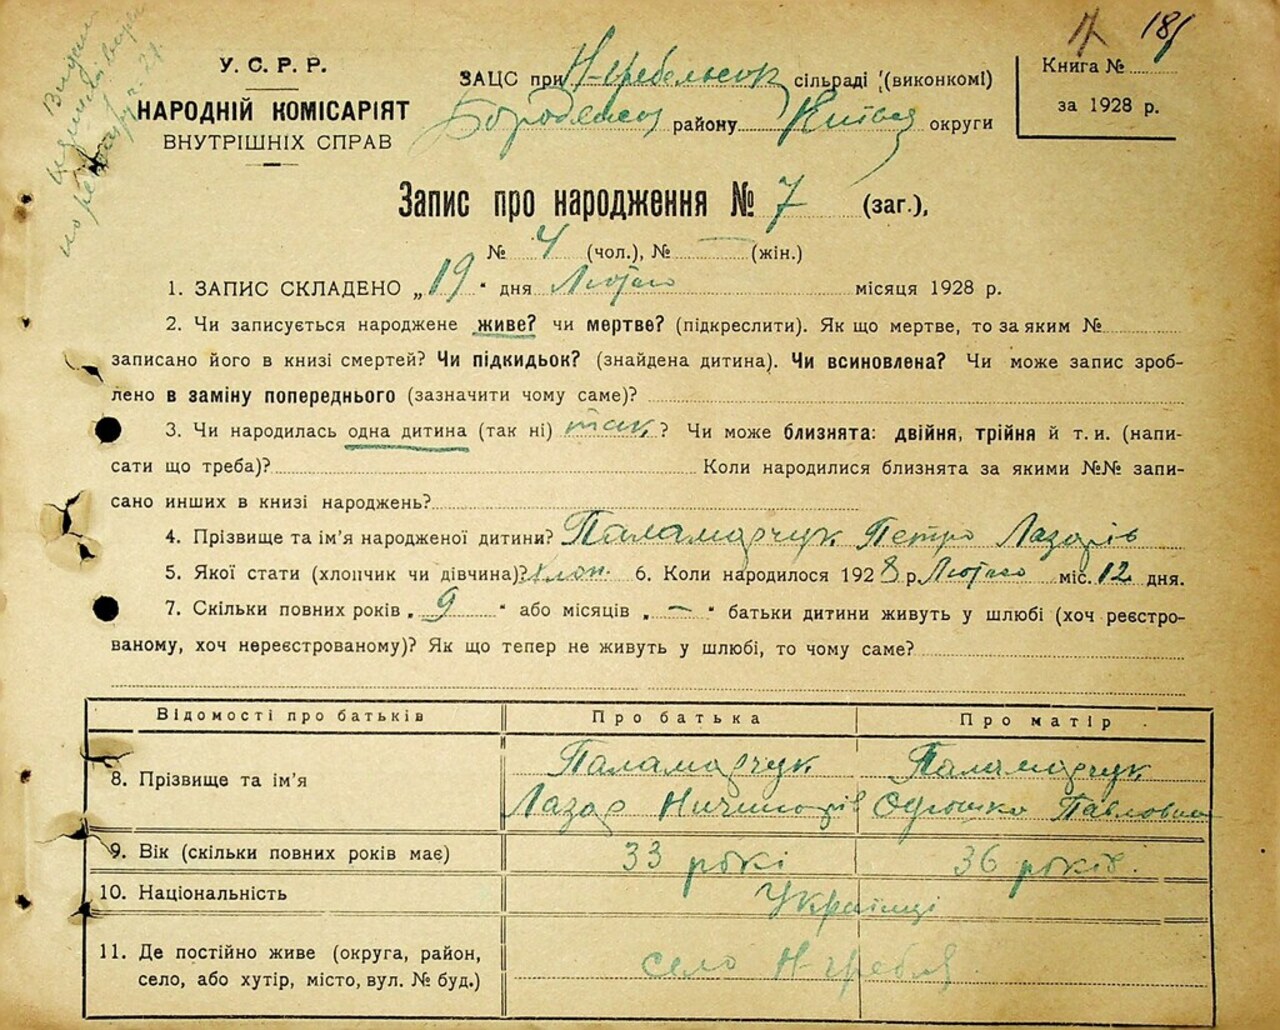 181
У. С. Р. Р.
НАРОДНІЙ КОМІСАРІЯТ
ВНУТРІШНІХ СПРАВ
ЗАЦС при Н-Гребельськ сільраді (виконкомі)
району Київськ округи
Книга №
за 1928 р.
Запис про народження № 7 (заг.),
№ 4 (чол.), № — (жін.)
1. ЗАПИС СКЛАДЕНО „19" дня Лютого місяця 1928 р.
2. Чи записується народжене живе? чи мертве? (підкреслити). Як що мертве, то за яким №
записано його в книзі смертей? Чи підкидьок? (знайдена дитина). Чи всиновлена? Чи може запис зроб-
лено в заміну попереднього (зазначити чому саме)?
3. Чи народилась одна дитина (так ні) так ? Чи може близнята: двійня, трійня й т. и. (напи-
сати що треба)? Коли народилися близнята за якими №№ запи-
сано инших в книзі народжень?
4. Прізвище та ім'я народженої дитини? Паламарчук Петро Лазарів
5. Якої стати (хлопчик чи дівчина)? хлоп. 6. Коли народилося 1928 р. Лютого міс. 12 дня.
7. Скільки повних років „ 9 " або місяців „ — " батьки дитини живуть у шлюбі (хоч реєстро-
ваному, хоч нереєстрованому)? Як що тепер не живуть у шлюбі, то чому саме?
Відомості про батьків Про батька Про матір
8. Прізвище та ім'я Паламарчук Паламарчук
Лазар Ничипорів Павловна
9. Вік (скільки повних років має) 33 рокі 36 років.
10. Національність Українці
11. Де постійно живе (округа, район,
село, або хутір, місто, вул. № буд.) село Н-Гребля